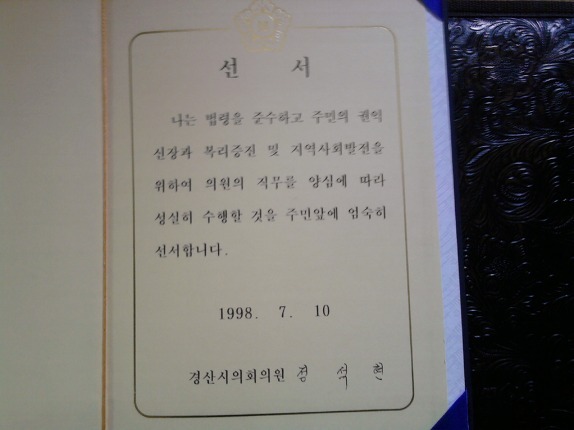 선 서
나는 법령을 준수하고 주민의 권익
신장과 복리증진 및 지역사회발전을
위하여 의원의 직무를 양심에 따라
성실히 수행할 것을 주민앞에 엄숙히
선서합니다.
1998. 7. 10
경산시의회의원 석 현